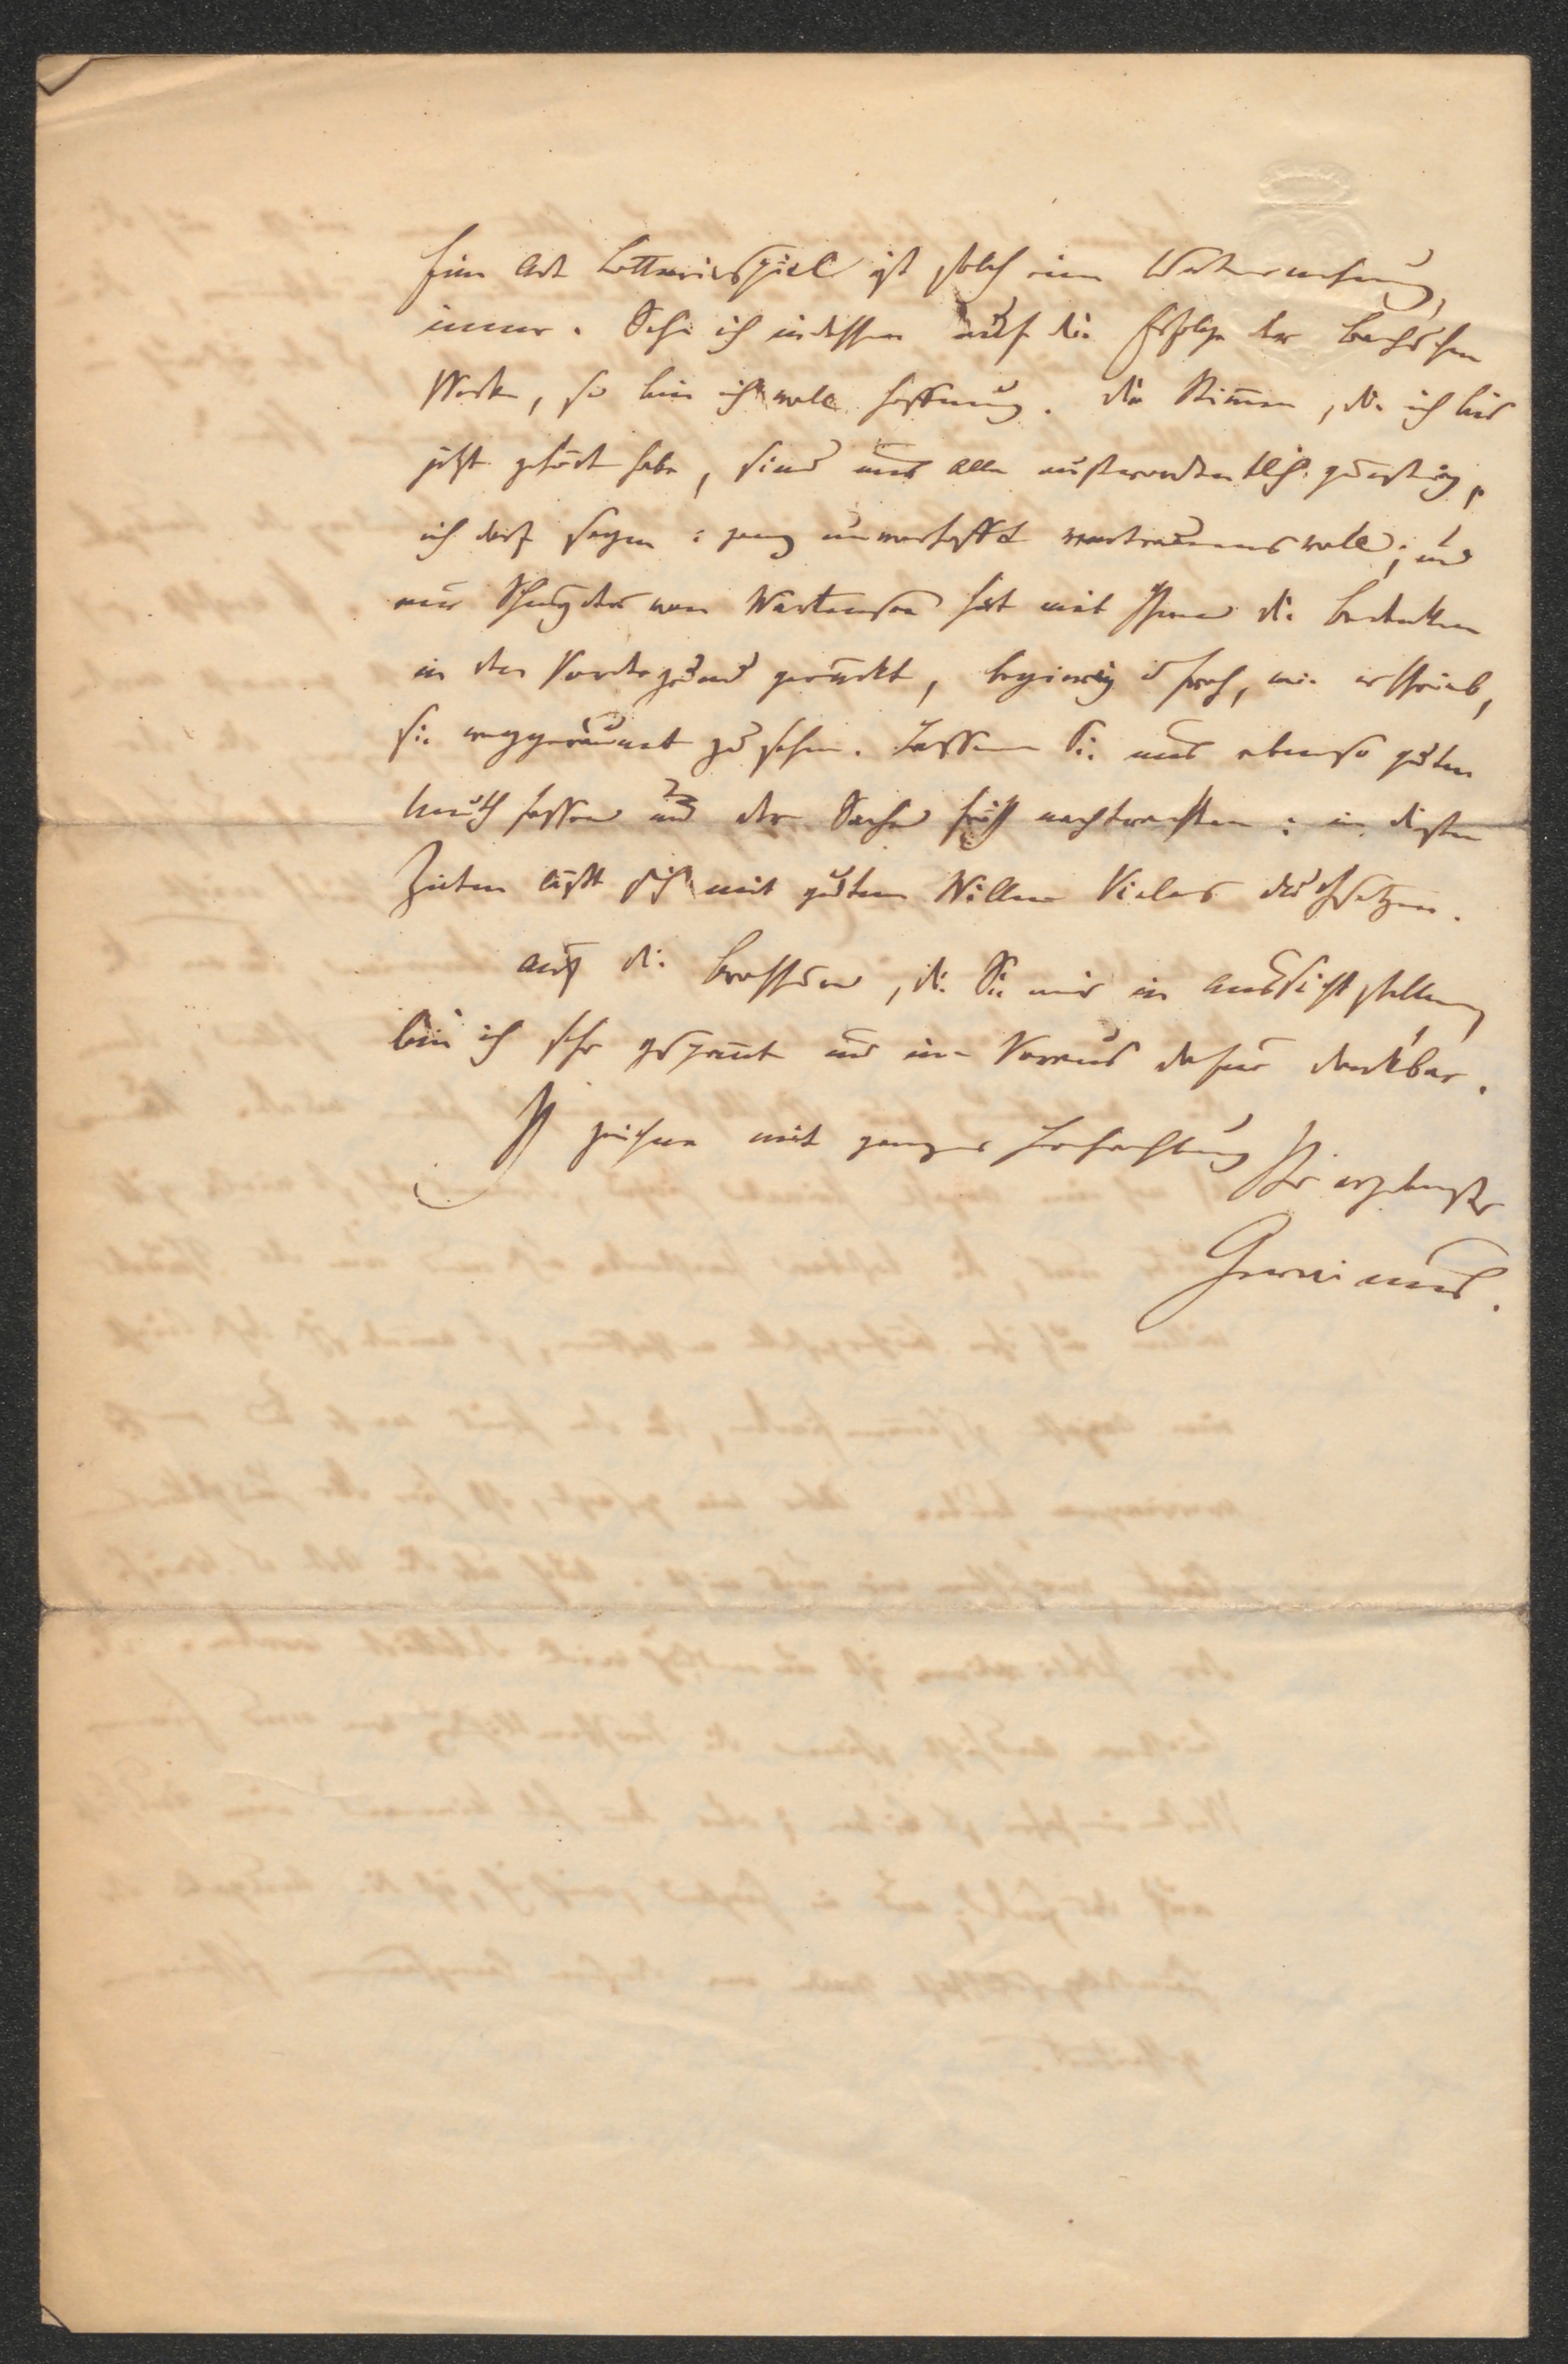 Eine Art Lotteriespiel ist solch eine Unternehmung
immer. Sehe ich indessen auf die Erfolge der Bachschen
Werke, so bin ich voll Hoffnung. Die Stimmen, die ich bis
jetzt gehört habe, sind uns alle außerordentlich günstig,
ich darf sagen: ganz unverhofft vertrauensvoll; und
nur Schnyder von Wartensee hat mit Ihnen die Bedenken
in den Vordergrund gerückt, begierig u froh, wie er schrieb,
sie weggeräumt zu sehen. Lassen Sie uns ebenso guten
Muth fassen und der Sache frisch nachtrachten: in diesen
Zeiten läßt sich mit gutem Willen Vieles durchsetzen.
Auf die Broschüre, die Sie mir in Aussicht stellen,
bin ich sehr gespannt und im Voraus dafür dankbar.
Ich zeichne mit ganzer Hochachtung
Ihr ergebenster
Gervinus.